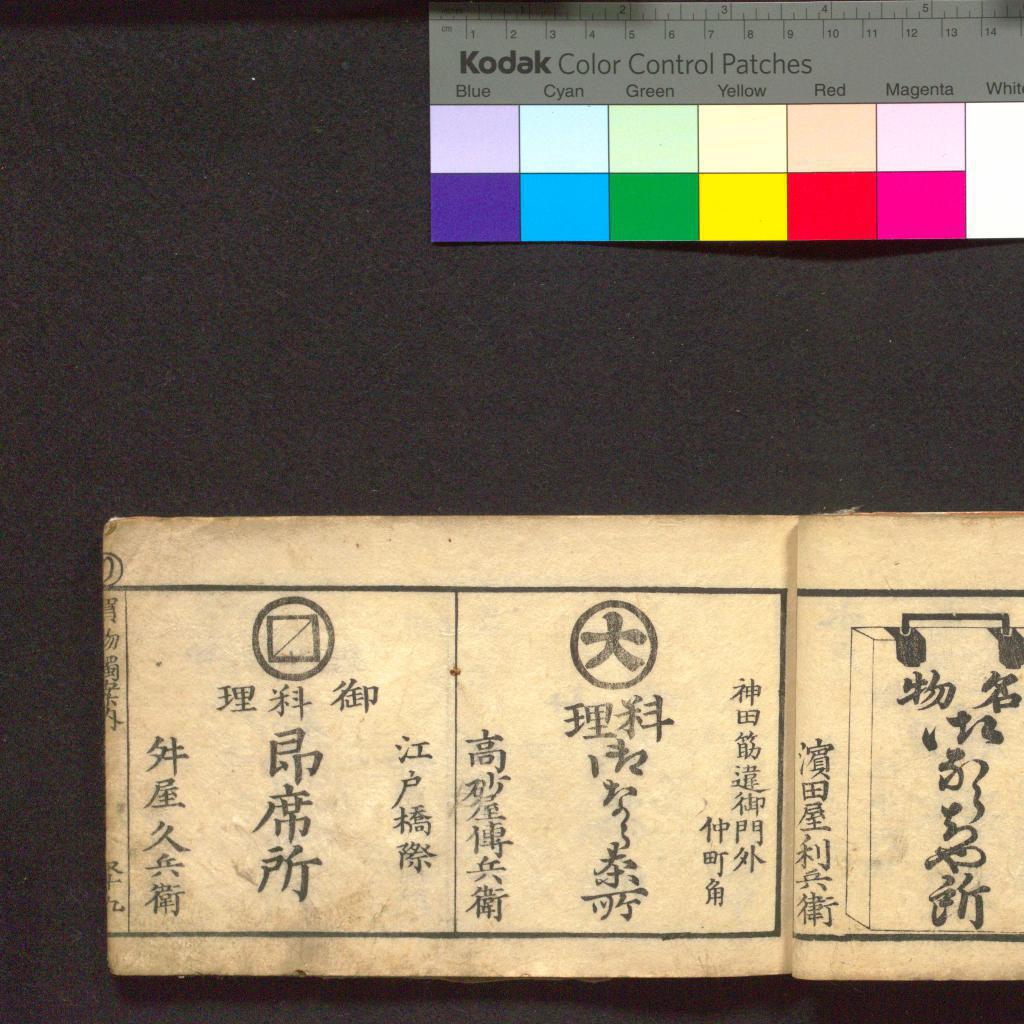 cm 1 2 3 4 5 6 7 8 9 10 11 12 13 14
2 3 4 5
Kodak Color Control Patches
Blue Cyan Green Yellow Red Magenta White
名物
御ならちや所
濱田屋利兵衛
神田筋違御門外
仲町角
大
料理
御なら茶所
高砂屋傳兵衛
江戸橋際
御料理
即席所
舛屋久兵衛